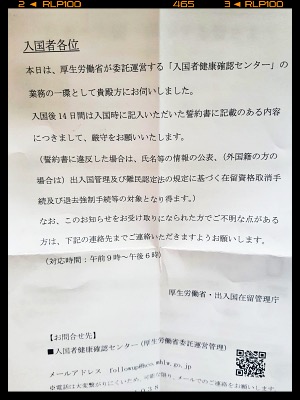 2 ◀ RLP100 465 3 ◀ RLP100
入国者各位
本日は、厚生労働省が委託運営する「入国者健康確認センター」の
業務の一環として貴殿方にお伺いしました。
入国後14日間は入国時に記入いただいた誓約書に記載のある内容
につきまして、厳守をお願いいたします。
(誓約書に違反した場合は、氏名等の情報の公表、(外国籍の方の
場合は)出入国管理及び難民認定法の規定に基づく在留資格取消手
続及び退去強制手続等の対象となり得ます。)
なお、このお知らせをお受け取りになられた方でご不明な点がある
方は、下記の連絡先までご連絡いただきますようお願いします。
(対応時間:午前9時~午後6時)
厚生労働省・出入国在留管理庁
【お問合せ先】
■入国者健康確認センター(厚生労働省委託運営管理)
メールアドレス followup@hco.mhlw.go.jp
※電話は大変繋がりにくいため、可能な限り、メールでのご連絡をお願いします。